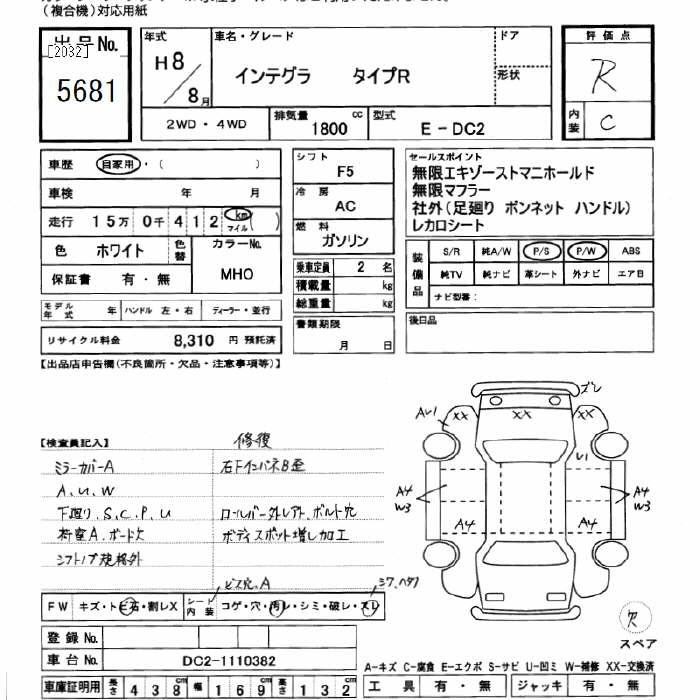 (複合機)対応用紙
出品No.
[2032]
5681
年式
H8/8月
車名・グレード
インテグラ タイプR
ドア
形状
2WD・4WD
排気量
1800 cc
型式
E-DC2
評価点
R
内装
C
車歴 自家用・( )
車検 年 月
走行 15万 0千 412 km マイル ( )
色 ホワイト 色替 カラーNo. MHO
保証書 有・無
モデル年式 年 ハンドル 左・右 ディーラー・並行
リサイクル料金 8,310 円 預託済
シフト
F5
冷房
AC
燃料
ガソリン
乗車定員 2 名
積載量 kg
総重量 kg
書類期限
月 日
セールスポイント
無限エキゾーストマニホールド
無限マフラー
社外(足廻り ボンネット ハンドル)
レカロシート
装備品
S/R 純A/W P/S P/W ABS
純TV 純ナビ 革シート 外ナビ エア日
ナビ型番:
後日品
【出品店申告欄(不良箇所・欠品・注意事項等)】
【検査員記入】
修復
ミラーカバーA
右FインパネB歪
A、U、W
下廻り、S、C、P、U
ロールバー外レアト、ボルト穴
荷室A、ボード欠
ボディスポット増し加工
シフトノブ規格外
ビス穴、A
シワ、ヘタリ
FW キズ・トビ石・割レX
シート内装 コゲ・穴・汚レ・シミ・破レ・スレ
登録No.
車台No. DC2-1110382
車庫証明用 長さ 438cm 幅 169cm 高さ 132cm
ズレ
AU1
XX
XX
XX
U1
A4
W3
A4
W3
A4
A4
欠
スペア
A-キズ C-腐食 E-エクボ S-サビ U-凹ミ W-補修 XX-交換済
工具 有・無 ジャッキ 有・無